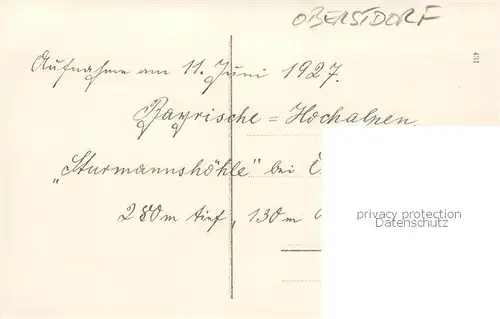 OBERSTDORF
431
Aufnahme am 11. Juni 1927.
Bayrische = Hochalpen.
„Sturmannshöhle" bei
280 m tief, 130 m
privacy protection
VIDEO